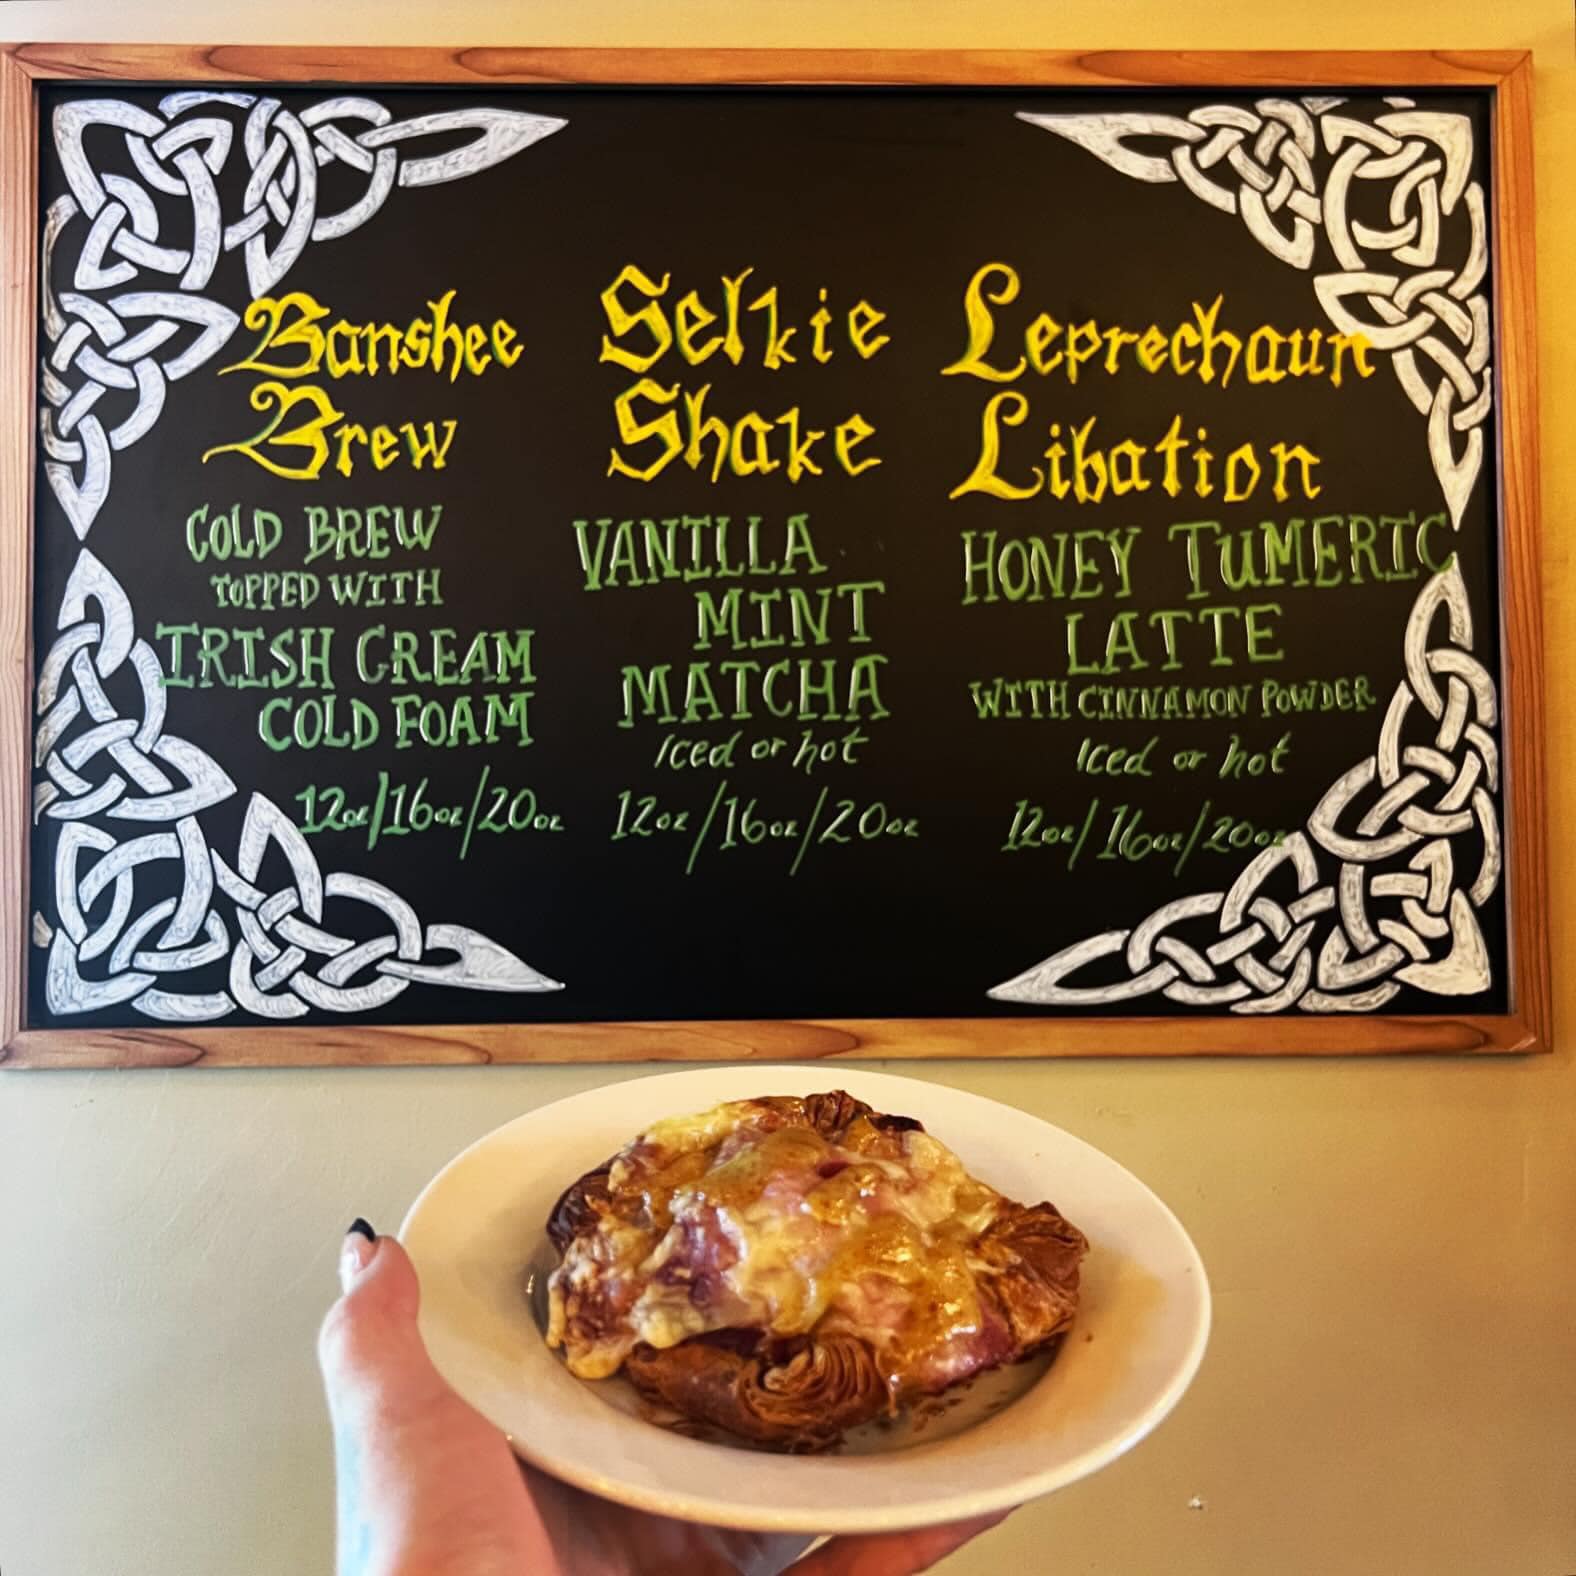 Banshee
Brew
COLD BREW
TOPPED WITH
IRISH CREAM
COLD FOAM
12oz/16oz/20oz
Selkie
Shake
VANILLA
MINT
MATCHA
Iced or hot
12oz/16oz/20oz
Leprechaun
Libation
HONEY TUMERIC
LATTE
WITH CINNAMON POWDER
Iced or hot
12oz/16oz/20oz